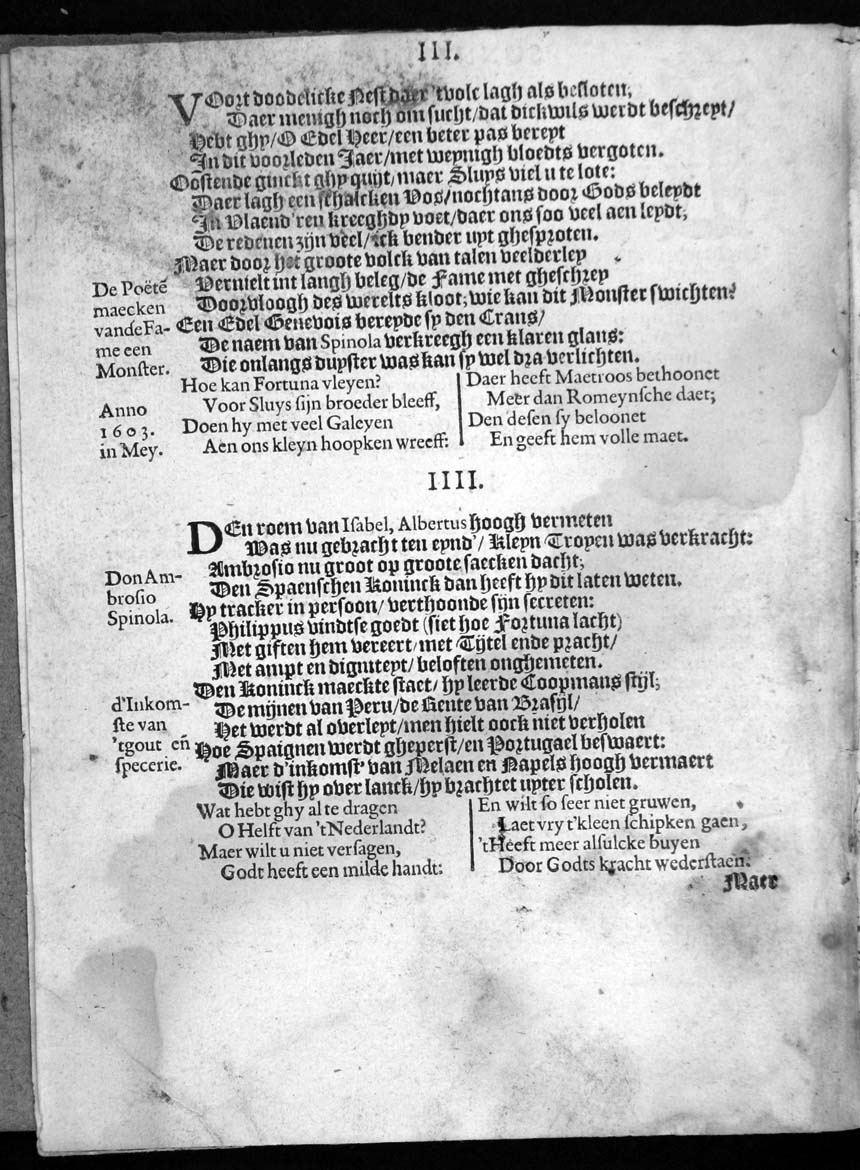 III.
VOort doodelicke Nest daer 'tvolc lagh als besloten,
Daer menigh noch om sucht/dat dickwils werdt beschreyt/
Hebt ghy/O Edel Heer/een beter pas bereyt
In dit voorleden Jaer/met weynigh bloedts vergoten.
Oostende ginckt ghy quijt, maer Sluys viel u te lote:
Daer lagh een schalcken Vos/nochtans door Gods beleydt
In Vlaend'ren kreeghdy voet/daer ons soo veel aen leydt;
De redenen zijn veel/ick bender uyt ghesproten.
Maer door het groote volck van talen veelderley
De Poëtē
maecken
vande Fa-
me een
Monster.
Vernielt int langh beleg/de Fame met gheschrey
Doorvloogh des werelts kloot; wie kan dit Monster swichten?
Een Edel Genevois bereyde sy den Crans/
De naem van Spinola verkreegh een klaren glans:
Die onlangs duyster was kan sy wel dra verlichten.
Anno
1603.
in Mey.
Hoe kan Fortuna vleyen?
Voor Sluys sijn broeder bleeff,
Doen hy met veel Galeyen
Aen ons kleyn hoopken wreeff:
Daer heeft Maetroos bethoonet
Meer dan Romeynsche daet;
Den desen sy beloonet
En geeft hem volle maet.
IIII.
DEn roem van Isabel, Albertus hoogh vermeten
Was nu gebracht ten eynd'/ Kleyn Troyen was verkracht:
Don Am-
brosio
Spinola.
Ambrosio nu groot op groote saecken dacht;
Den Spaenschen Koninck dan heeft hy dit laten weten.
Hy tracker in persoon/ verthoonde sijn secreten:
Philippus vindtse goedt (siet hoe Fortuna lacht)
Met giften hem vereert/met Tijtel ende pracht/
Met ampt en digniteyt/ beloften onghemeten.
Den Koninck maeckte staet/ hy leerde Coopmans stijl;
d'Inkom-
ste van
'tgout eñ
specerie.
De mijnen van Peru/de Rente van Brasijl/
Het werdt al overleyt/men hielt oock niet verholen
Hoe Spaignen werdt gheperst/en Portugael beswaert:
Maer d'inkomst' van Melaen en Napels hoogh vermaert
Die wist hy over lanck/hy brachtet uyter scholen.
Wat hebt ghy al te dragen
O Helft van 't Nederlandt?
Maer wilt u niet versagen,
Godt heeft een milde handt:
En wilt so seer niet gruwen,
Laet vry t'kleen schipken gaen,
'tHeeft meer alsulcke buyen
Door Godts kracht wederstaen.
Maer